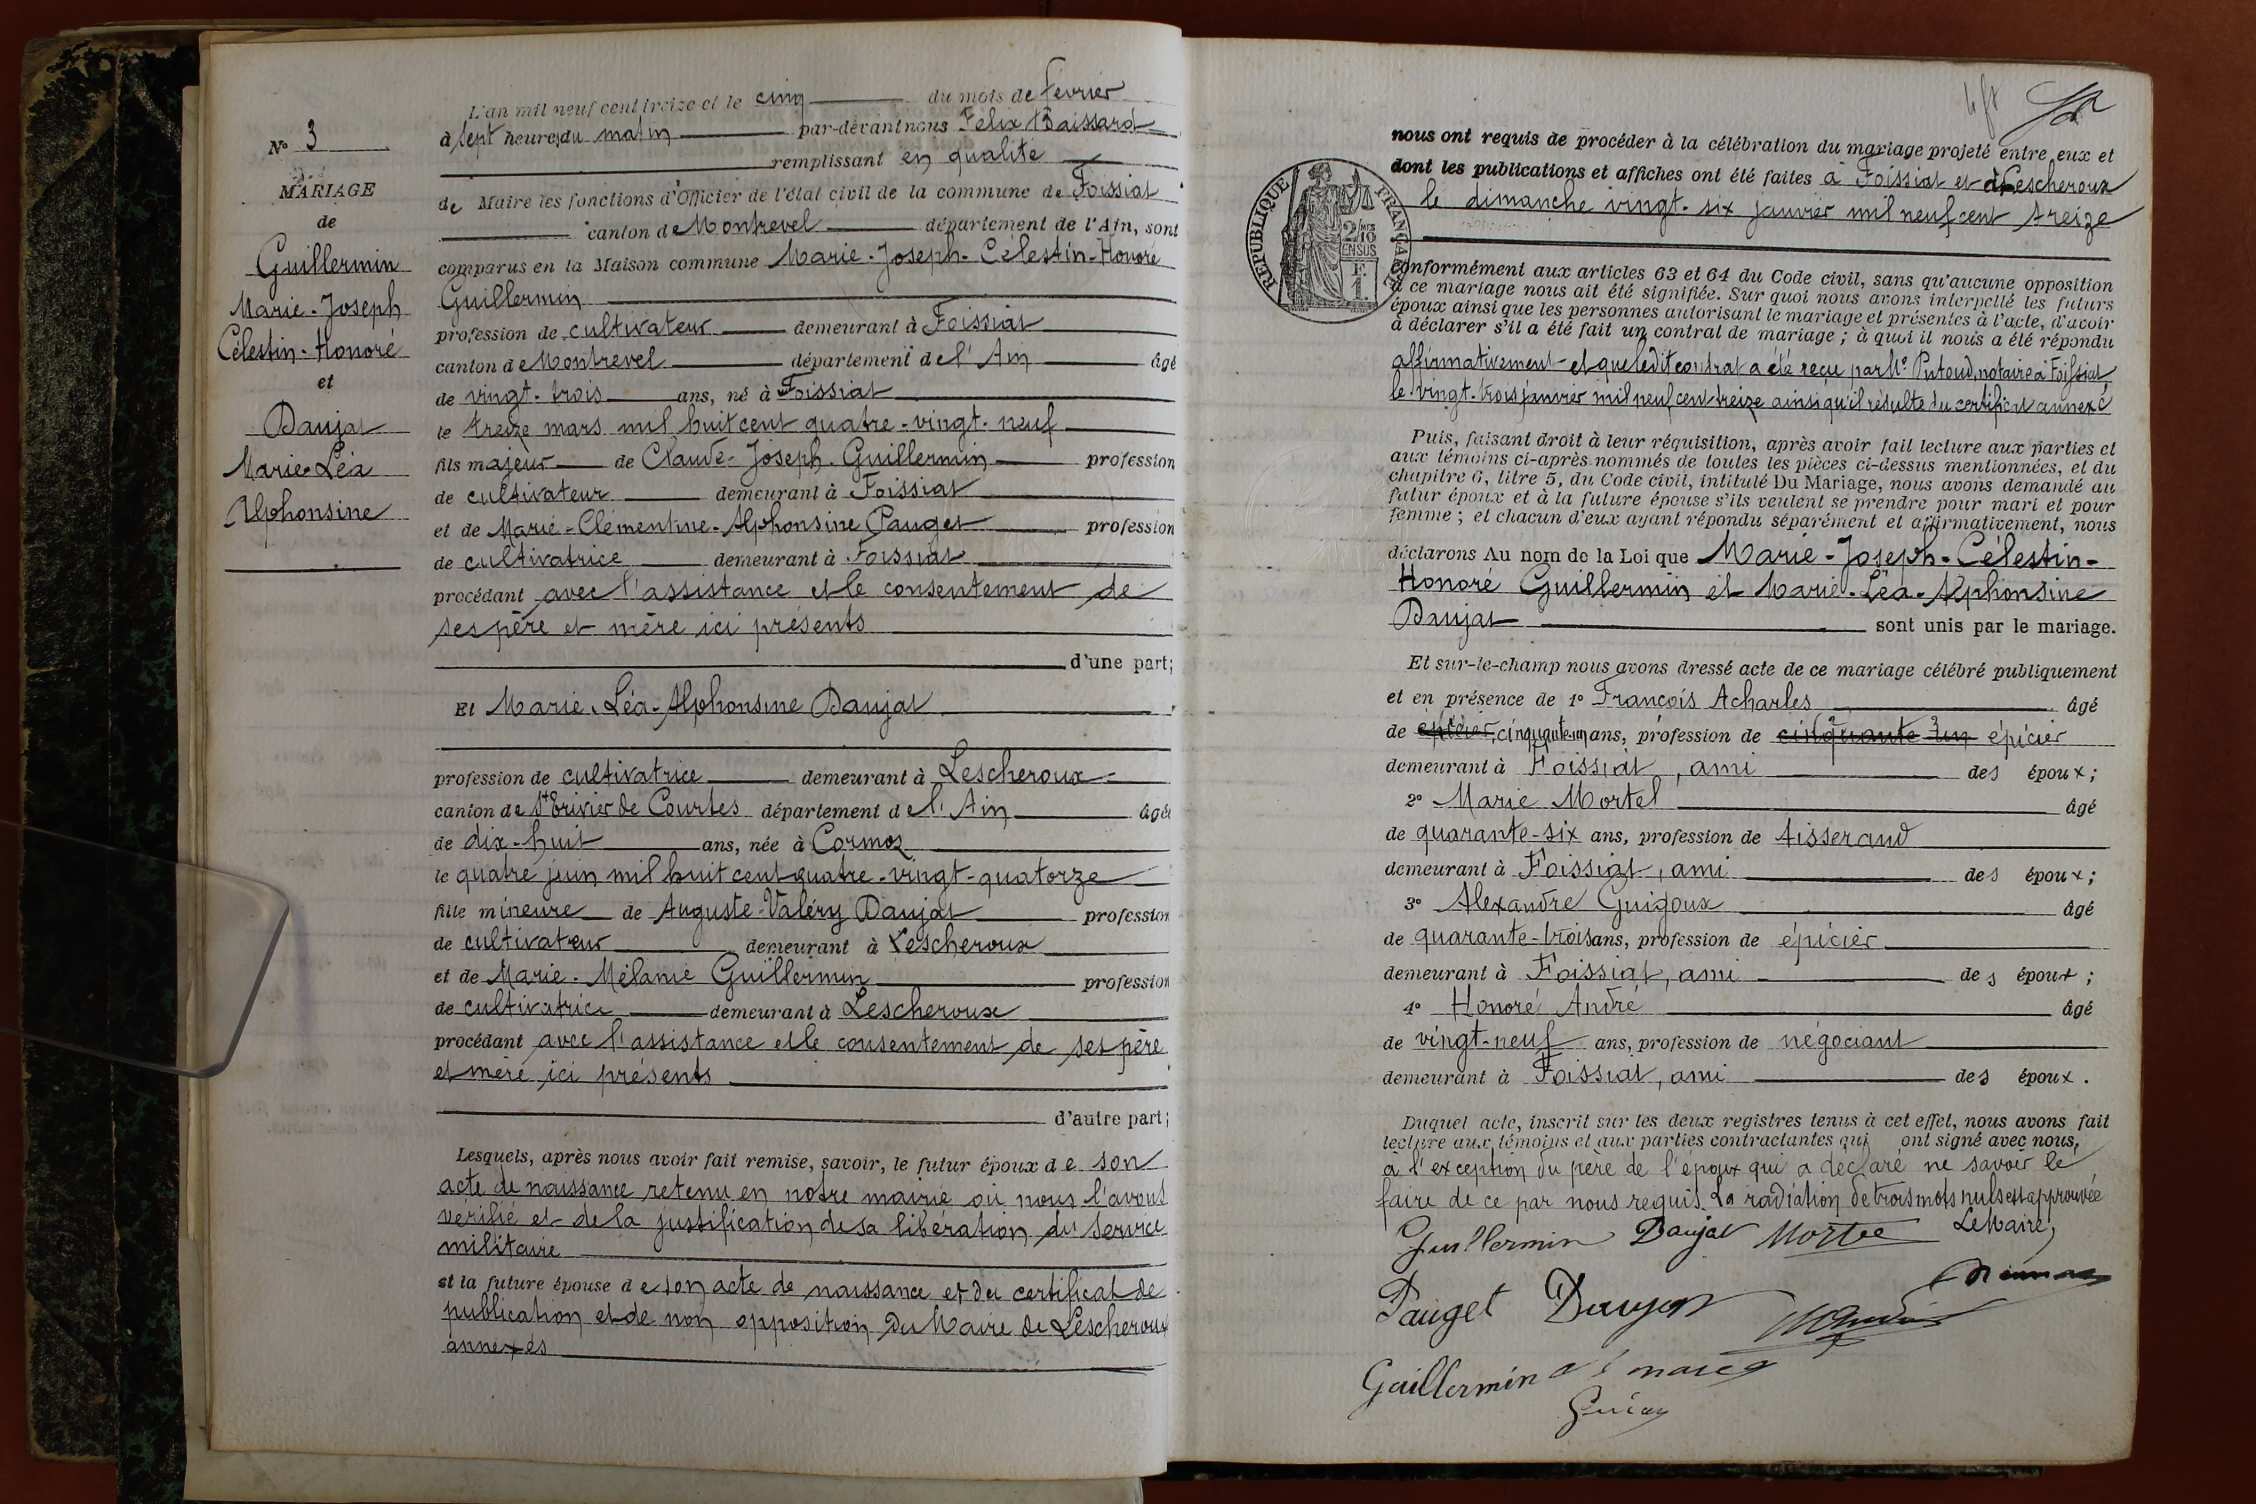 N° 3
MARIAGE
de
Guillermin
Marie-Joseph
Célestin-Honoré
et
Daujat
Marie-Léa
Alphonsine
L'an mil neuf cent treize et le cinq du mois de février
à sept heures du matin par-devant nous Felix Baissard
remplissant en qualité
de Maire les fonctions d'Officier de l'état civil de la commune de Foissiat
canton de Montrevel département de l'Ain, sont
comparus en la Maison commune Marie-Joseph-Célestin-Honoré
Guillermin
profession de cultivateur demeurant à Foissiat
canton de Montrevel département de l'Ain âgé
de vingt-trois ans, né à Foissiat
le treize mars mil huit cent quatre-vingt-neuf
fils majeur de Claude-Joseph Guillermin profession
de cultivateur demeurant à Foissiat
et de Marie-Clémentine-Alphonsine Pauget profession
de cultivatrice demeurant à Foissiat
procédant avec l'assistance et le consentement de
ses père et mère ici présents
d'une part;
Et Marie-Léa-Alphonsine Daujat
profession de cultivatrice demeurant à Lescheroux
canton de St Trivier de Courtes département de l'Ain âgée
de dix-huit ans, née à Cormoz
le quatre juin mil huit cent quatre-vingt-quatorze
fille mineure de Auguste-Valéry Daujat profession
de cultivateur demeurant à Lescheroux
et de Marie-Mélanie Guillermin profession
de cultivatrice demeurant à Lescheroux
procédant avec l'assistance et le consentement de ses père
et mère ici présents
d'autre part;
Lesquels, après nous avoir fait remise, savoir, le futur époux de son
acte de naissance retenu en notre mairie où nous l'avons
verifié et de la justification de sa libération du service
militaire
et la future épouse de son acte de naissance et du certificat de
publication et de non opposition du Maire de Lescheroux
annexés
REPUBLIQUE FRANÇAISE
2/10 EN SUS
F. 1.
nous ont requis de procéder à la célébration du mariage projeté entre eux et
dont les publications et affiches ont été faites à Foissiat et à Lescheroux
le dimanche vingt-six janvier mil neuf cent treize
conformément aux articles 63 et 64 du Code civil, sans qu'aucune opposition
à ce mariage nous ait été signifiée. Sur quoi nous avons interpellé les futurs
époux ainsi que les personnes autorisant le mariage et présentes à l'acte, d'avoir
à déclarer s'il a été fait un contrat de mariage; à quoi il nous a été répondu
affirmativement et que ledit contrat a été reçu par Me Putoud, notaire à Foissiat,
le vingt-trois janvier mil neuf cent treize ainsi qu'il résulte du certificat annexé
Puis, faisant droit à leur réquisition, après avoir fait lecture aux parties et
aux témoins ci-après nommés de toutes les pièces ci-dessus mentionnées, et du
chapitre 6, titre 5, du Code civil, intitulé Du Mariage, nous avons demandé au
futur époux et à la future épouse s'ils veulent se prendre pour mari et pour
femme; et chacun d'eux ayant répondu séparément et affirmativement, nous
déclarons Au nom de la Loi que Marie-Joseph-Célestin-
Honoré Guillermin et Marie-Léa-Alphonsine
Daujat sont unis par le mariage.
Et sur-le-champ nous avons dressé acte de ce mariage célébré publiquement
et en présence de 1° François Acharles âgé
de épicier, cinquante un ans, profession de cinquante un épicier
demeurant à Foissiat, ami des époux;
2° Marie Mortel âgé
de quarante-six ans, profession de tisserand
demeurant à Foissiat, ami des époux;
3° Alexandre Guigoux âgé
de quarante-trois ans, profession de épicier
demeurant à Foissiat, ami des époux;
4° Honoré André âgé
de vingt-neuf ans, profession de négociant
demeurant à Foissiat, ami des époux.
Duquel acte, inscrit sur les deux registres tenus à cet effet, nous avons fait
lecture aux témoins et aux parties contractantes qui ont signé avec nous,
à l'exception du père de l'époux qui a déclaré ne savoir le
faire de ce par nous requis. La radiation de trois mots nuls est approuvée
Guillermin Daujat Mortel Le Maire,
Pauget Daujat
Guillermin